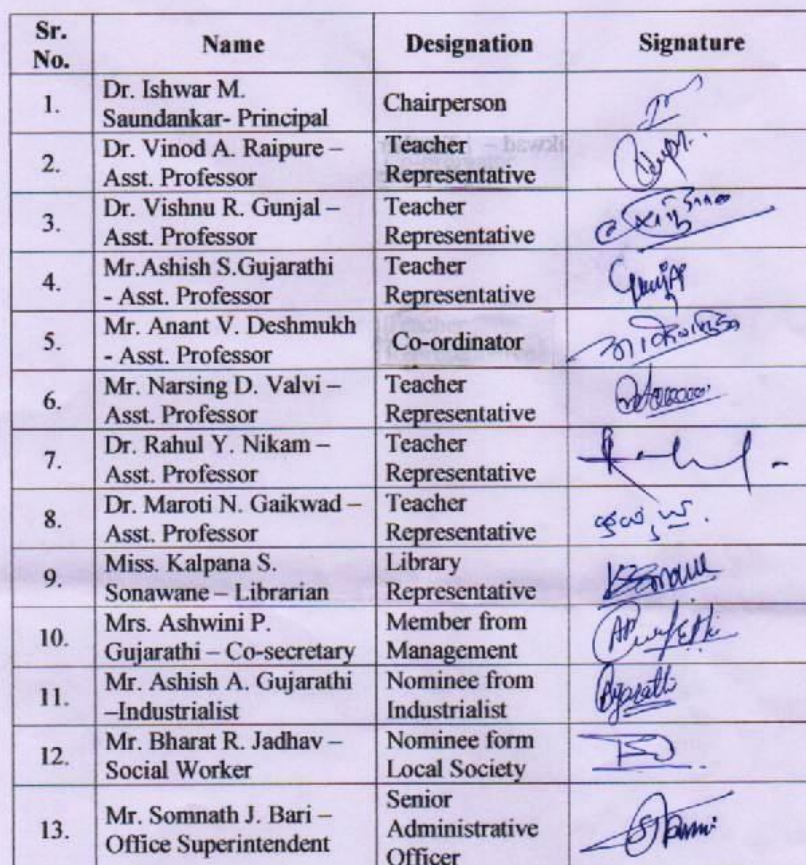 Sr. No. Name Designation Signature
1. Dr. Ishwar M. Saundankar- Principal Chairperson
2. Dr. Vinod A. Raipure – Asst. Professor Teacher Representative
3. Dr. Vishnu R. Gunjal – Asst. Professor Teacher Representative
4. Mr.Ashish S.Gujarathi - Asst. Professor Teacher Representative
5. Mr. Anant V. Deshmukh - Asst. Professor Co-ordinator
6. Mr. Narsing D. Valvi – Asst. Professor Teacher Representative
7. Dr. Rahul Y. Nikam – Asst. Professor Teacher Representative
8. Dr. Maroti N. Gaikwad – Asst. Professor Teacher Representative
9. Miss. Kalpana S. Sonawane – Librarian Library Representative
10. Mrs. Ashwini P. Gujarathi – Co-secretary Member from Management
11. Mr. Ashish A. Gujarathi –Industrialist Nominee from Industrialist
12. Mr. Bharat R. Jadhav – Social Worker Nominee form Local Society
13. Mr. Somnath J. Bari – Office Superintendent Senior Administrative Officer